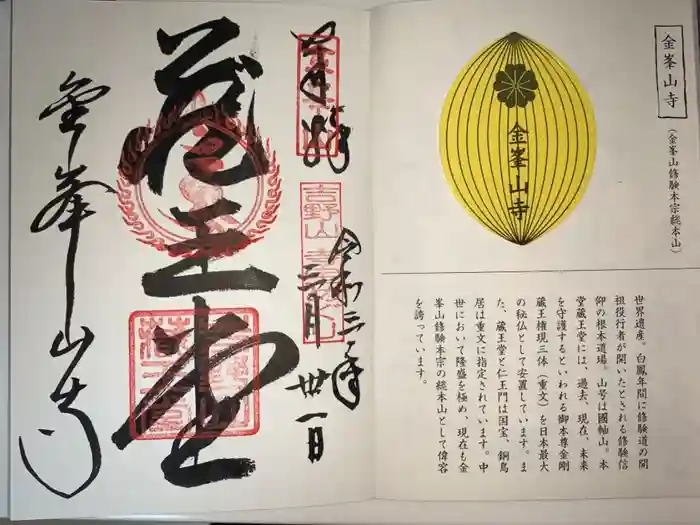 金峯山寺
(金峯山修験本宗総本山)
金峯山寺
世界遺産。白鳳年間に修験道の開
祖役行者が開いたとされる修験信
仰の根本道場。山号は國軸山。本
堂蔵王堂には、過去、現在、未来
を守護するといわれる御本尊金剛
蔵王権現三体(重文)を日本最大
の秘仏として安置しています。ま
た、蔵王堂と仁王門は国宝、銅鳥
居は重文に指定されています。中
世において隆盛を極め、現在も金
峯山修験本宗の総本山として偉容
を誇っています。
奉拝
令和三年
三月卅一日
蔵王堂
金峯山寺